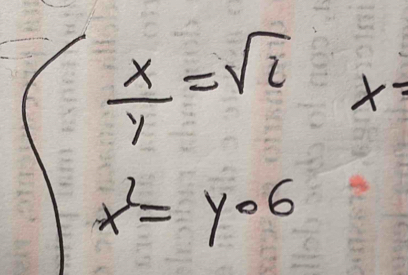 x/y = √2
x =
x² = y∘6